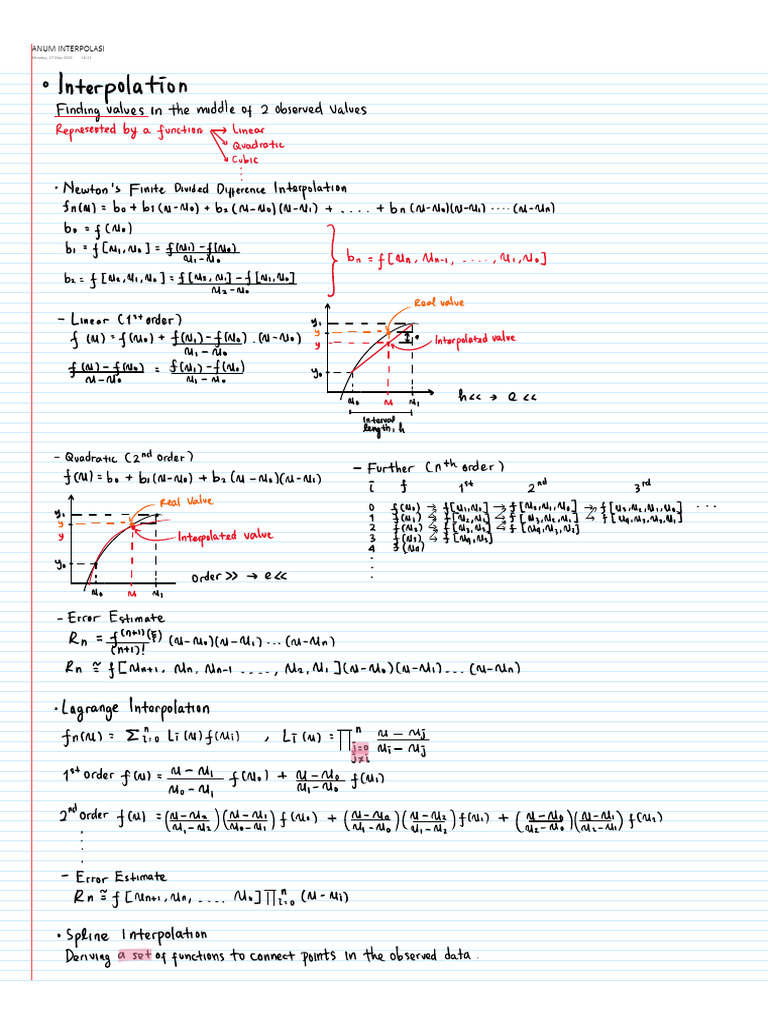 ANUM INTERPOLASI
Monday, 27 May 2024
• Interpolation
Finding values in the middle of 2 observed values
Represented by a function → Linear
Quadratic
Cubic
⋮
• Newton's Finite Divided Difference Interpolation
fn(x) = b0 + b1(x-x0) + b2(x-x0)(x-x1) + .... + bn(x-x0)(x-x1) .... (x-xn)
b0 = f(x0)
b1 = f[x1,x0] = (f(x1)-f(x0))/(x1-x0)
b2 = f[x2,x1,x0] = (f[x2,x1]-f[x1,x0])/(x2-x0)
bn = f[xn, xn-1, ...., x1,x0]
- Linear (1st order)
f(x) = f(x0) + (f(x1)-f(x0))/(x1-x0) . (x-x0)
(f(x)-f(x0))/(x-x0) = (f(x1)-f(x0))/(x1-x0)
Real value
y1
y
y
e
Interpolated value
y0
x0 x x1
Interval
length, h
h<< → e<<
- Quadratic (2nd order)
f(x) = b0 + b1(x-x0) + b2(x-x0)(x-x1)
Real value
y1
y
y
Interpolated value
y0
x0 x x1
Order >> → e<<
- Further (nth order)
i f 1st 2nd 3rd
0 f(x0) → f[x1,x0] → f[x2,x1,x0] → f[x3,x2,x1,x0] ...
1 f(x1) → f[x2,x1] → f[x3,x2,x1] → f[x4,x3,x2,x1]
2 f(x2) → f[x3,x2] → f[x4,x3,x2]
3 f(x3) → f[x4,x3]
4 f(x4)
⋮
- Error Estimate
Rn = f^(n+1)(ξ)/(n+1)! (x-x0)(x-x1) ... (x-xn)
Rn ≅ f[xn+1, xn, xn-1 ...., x2, x1](x-x0)(x-x1) ... (x-xn)
• Lagrange Interpolation
fn(x) = Σ^n_i=0 Li(x) f(xi) , Li(x) = ∏^n_j=0 j≠i (x-xj)/(xi-xj)
1st order f(x) = (x-x1)/(x0-x1) f(x0) + (x-x0)/(x1-x0) f(x1)
2nd order f(x) = ((x-x2)/(x1-x2))((x-x1)/(x0-x1)) f(x0) + ((x-x0)/(x1-x0))((x-x2)/(x1-x2)) f(x1) + ((x-x0)/(x2-x0))((x-x1)/(x2-x1)) f(x2)
⋮
- Error Estimate
Rn ≅ f[xn+1, xn, .... x0] ∏^n_i=0 (x-xi)
• Spline Interpolation
Deriving a set of functions to connect points in the observed data.